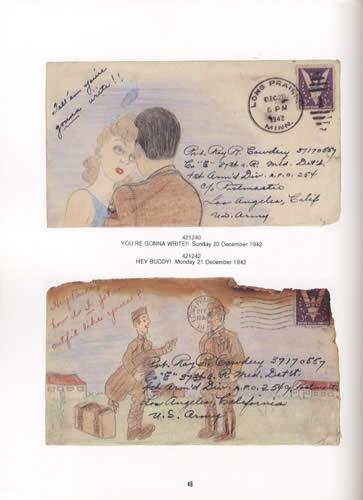 Tell 'em you're
gonna write!!
LONG PRAIRIE
DEC 20
6 PM
1942
MINN.
Pvt. Ray R. Cowdery 37170557
Co "E" 37th A.R. Med. Det't.
4th Arm'd Div. A.P.O. 254
c/o Postmaster
Los Angeles, Calif
U.S. Army
421240
YOU'RE GONNA WRITE!! Sunday 20 December 1942
421242
HEY BUDDY! Monday 21 December 1942
Hey
how do I
outfit like yours?
Pvt. Ray R. Cowdery 37170557
Co "E" 37th A.R. Med. Det't.
4th Arm'd Div. A.P.O. 254
Los Angeles, California
U.S. Army
46